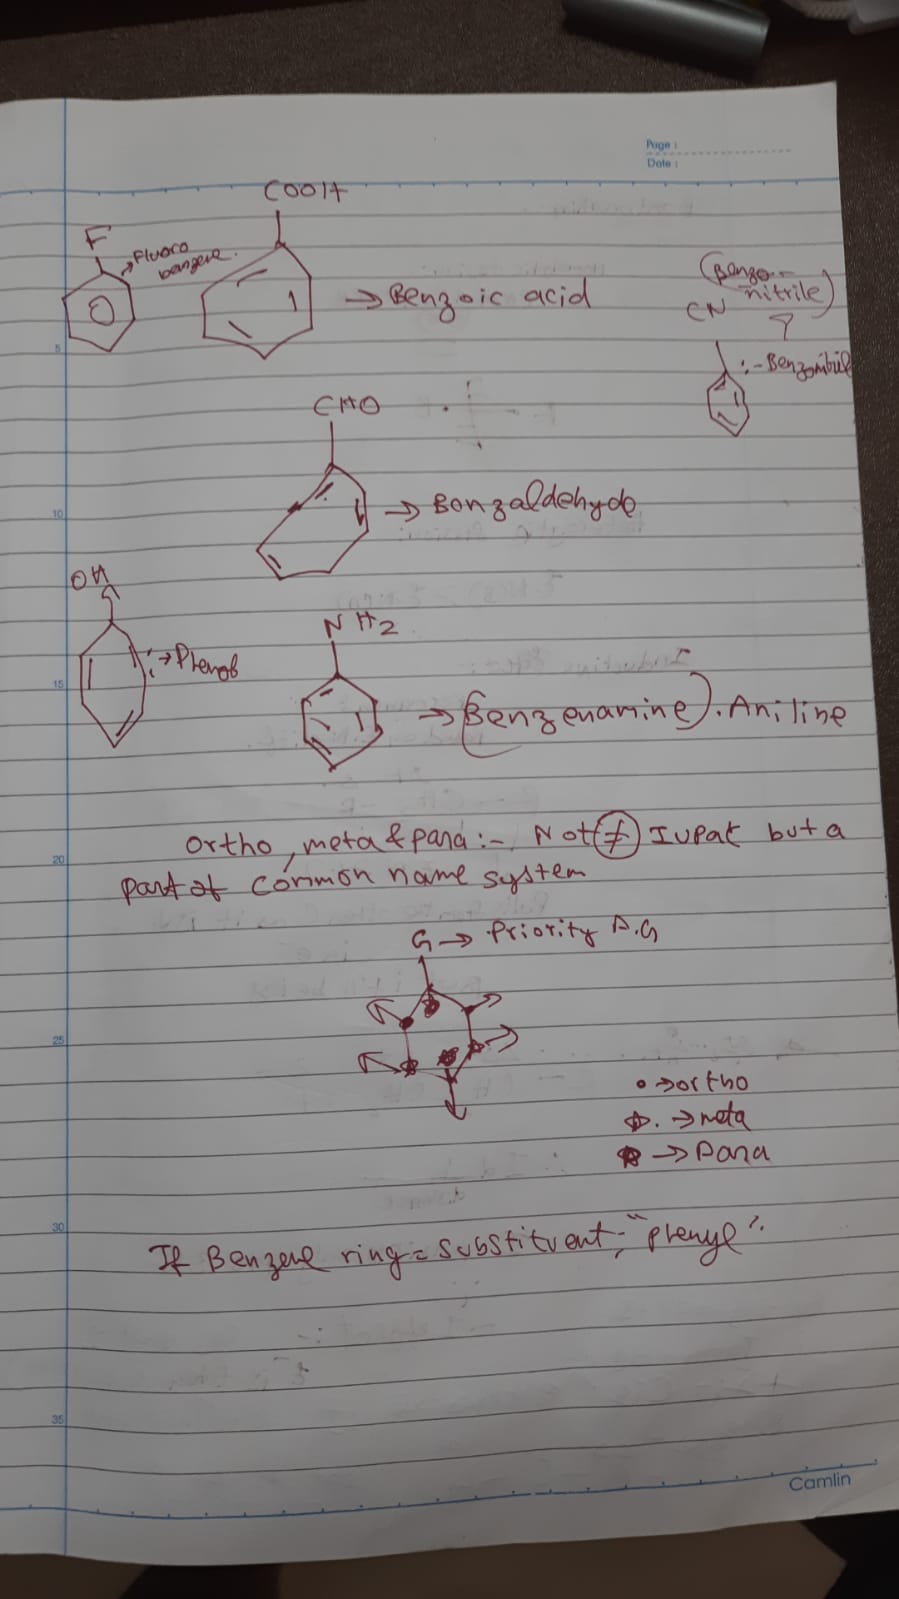 Page :
Date :
COOH
F
Fluoro
benzene.
→ Benzoic acid
(Benzo-
nitrile)
CN
:- Benzonitrile
5
CHO
10
→ Benzaldehyde
OH
:→ Phenol
NH2
15
→ (Benzenamine). Aniline
20
Ortho, meta & para :- Not ≠ IUPAC but a
part of common name system
G → Priority
25
• → ortho
→ meta
→ Para
30
If Benzene ring = substituent; "phenyl".
35
Camlin